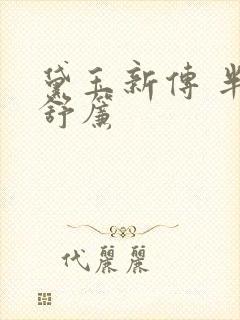 黛玉新傳 半
舒簾
代麗麗